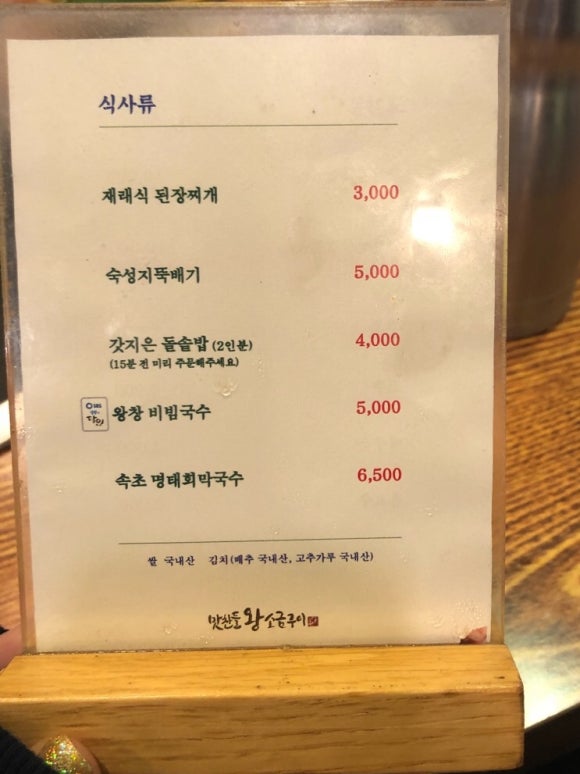 식사류
재래식 된장찌개 3,000
숙성지뚝배기 5,000
갓지은 돌솥밥 (2인분) 4,000
(15분 전 미리 주문해주세요)
SBS
달인
왕창 비빔국수 5,000
속초 명태회막국수 6,500
쌀 국내산 김치(배추 국내산, 고추가루 국내산)
맛찬들 왕소금구이